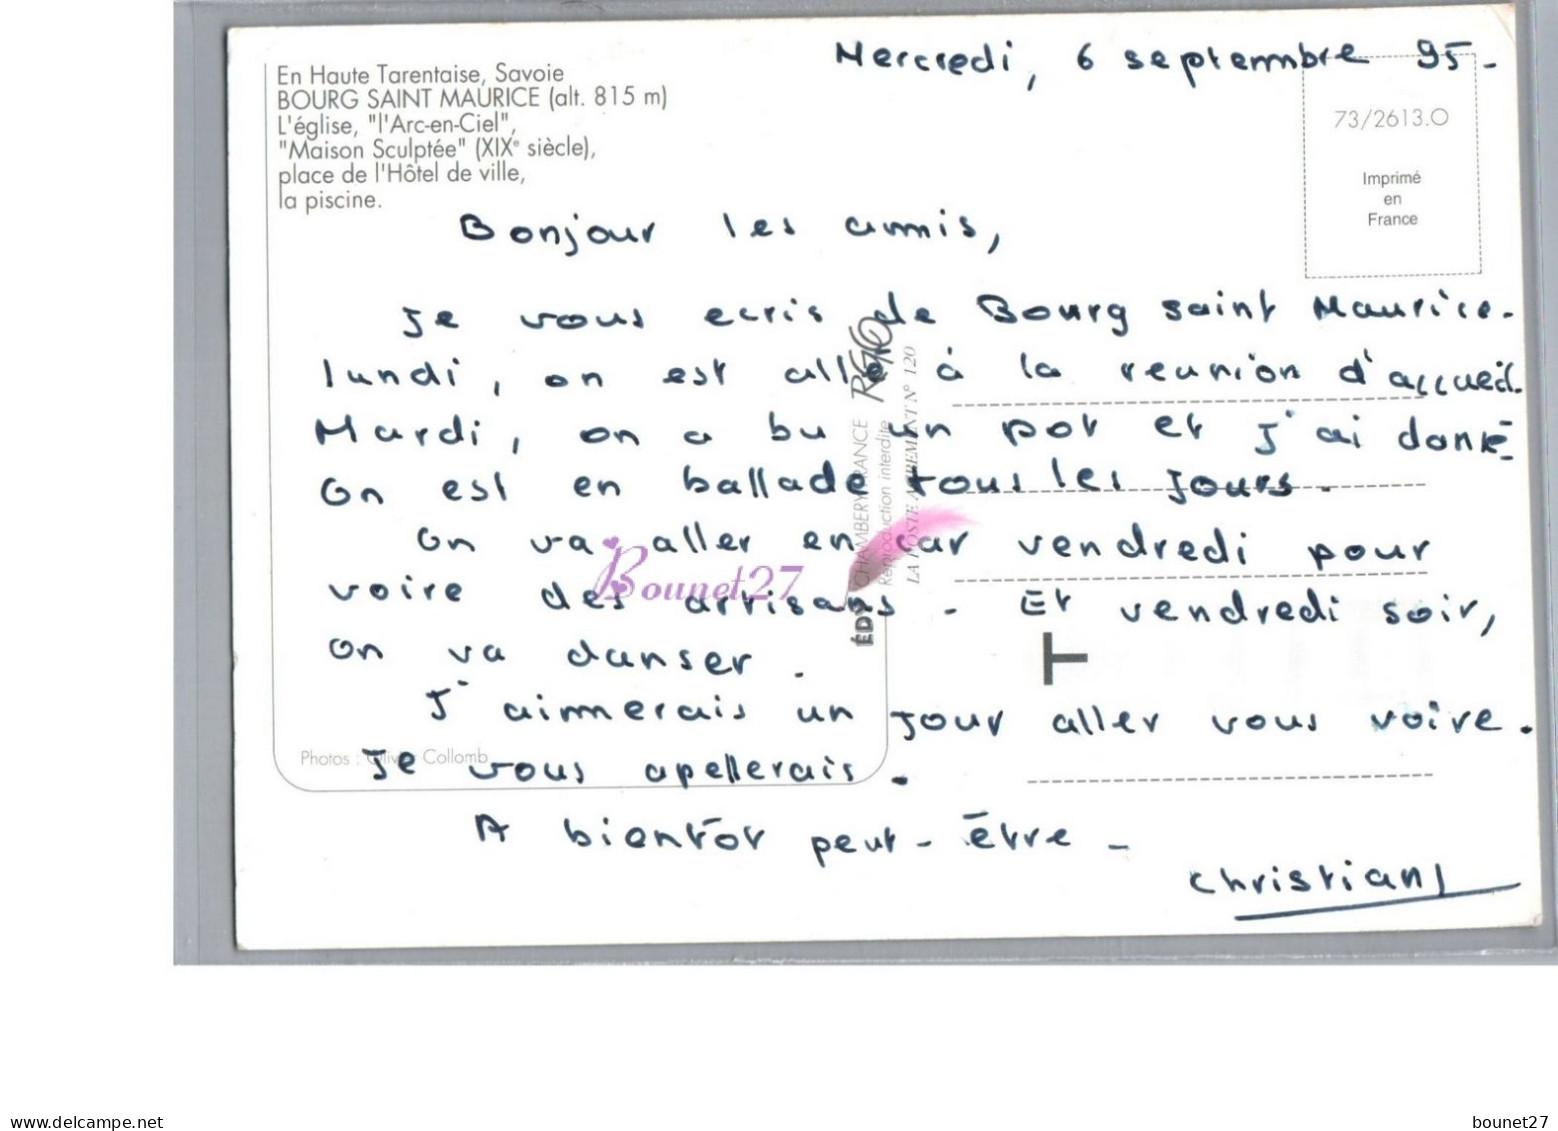 Mercredi, 6 septembre 95-
En Haute Tarentaise, Savoie
BOURG SAINT MAURICE (alt. 815 m)
L'église, "l'Arc-en-Ciel",
"Maison Sculptée" (XIXe siècle),
place de l'Hôtel de ville,
la piscine.
73/2613.O
Imprimé
en
France
Bonjour les amis,
Je vous ecris de Bourg saint Maurice.
lundi, on est allé à la reunion d'accueil.
Mardi, on a bu un pot et j'ai dansé
On est en ballade tous les jours.
On va aller en car vendredi pour
voire des artisans. Et vendredi soir,
on va danser.
J'aimerais un jour aller vous voire.
Je vous apellerais.
A bientôt peut-être-
Christian
Photos : Olivier Collomb
ÉDY CHAMBERY FRANCE
Reproduction interdite
LA POSTE AGREMENT N° 120
T
Bounet27
www.delcampe.net
bounet27